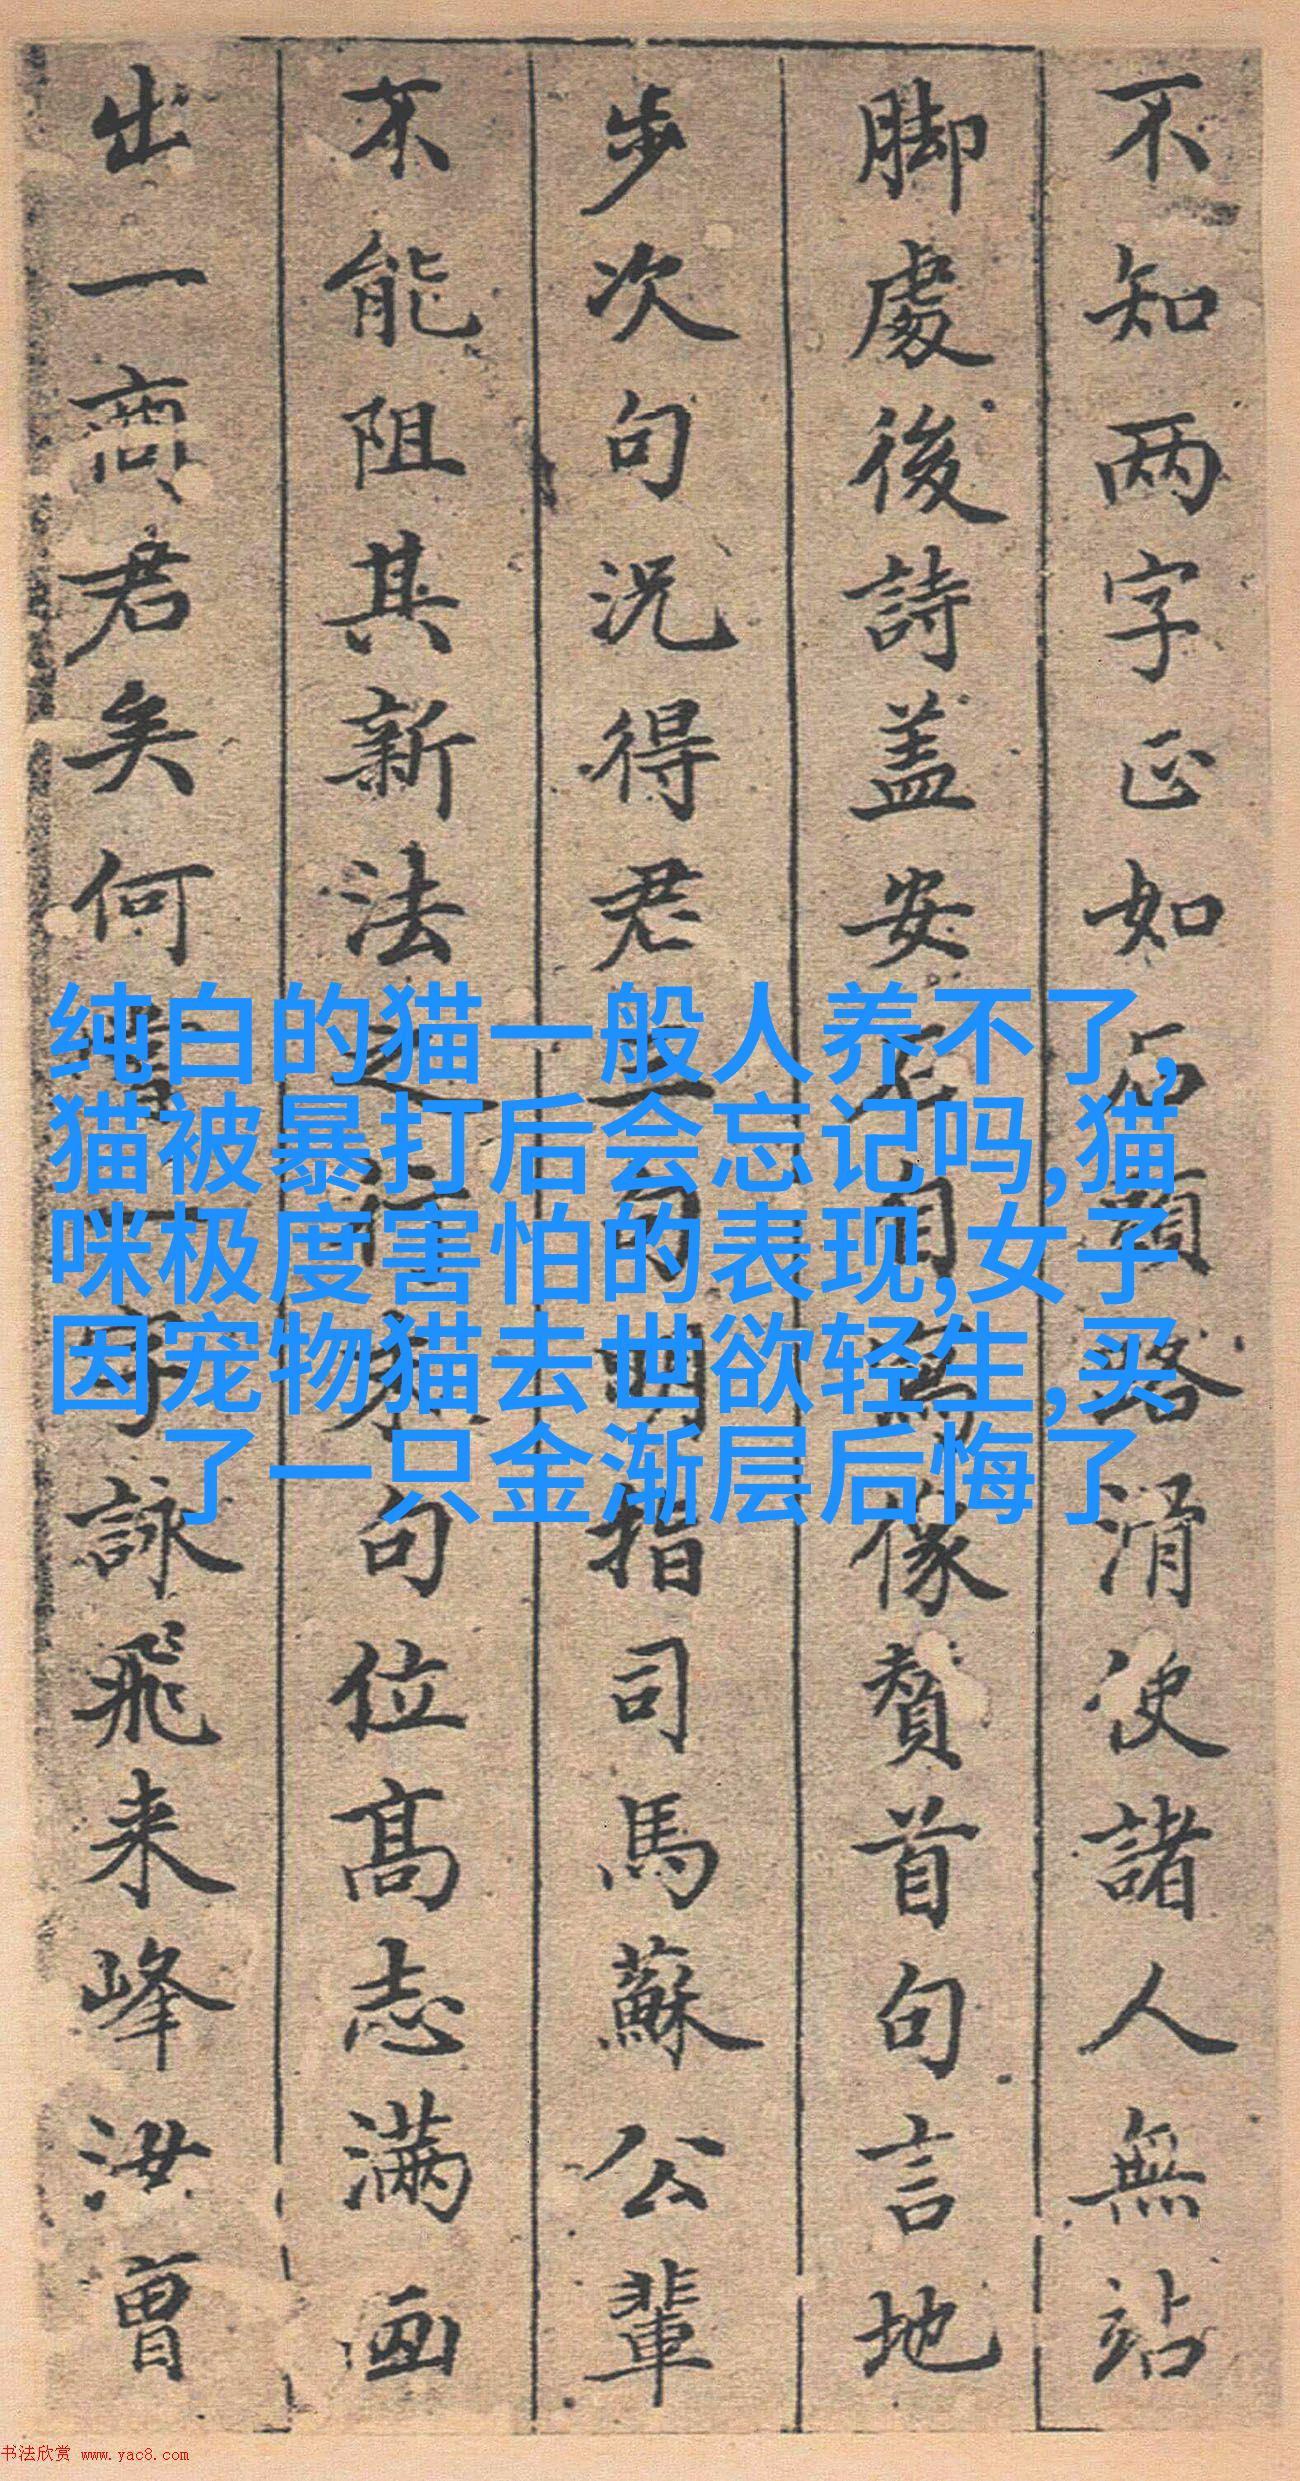 不知两字正如石頭路滑使諸人無站
脚處後詩盖安石自寫像賛首句言地
步次句況得君三句明指司馬蘇公輩
不能阻其新法之行末句位高志满画
出一商君矣何一字詠飛来峰汝曾
纯白的猫一般人养不了,
猫被暴打后会忘记吗,猫
咪极度害怕的表现,女子
因宠物猫去世欲轻生,买
了一只金渐层后悔了
书法欣赏 www.yac8.com